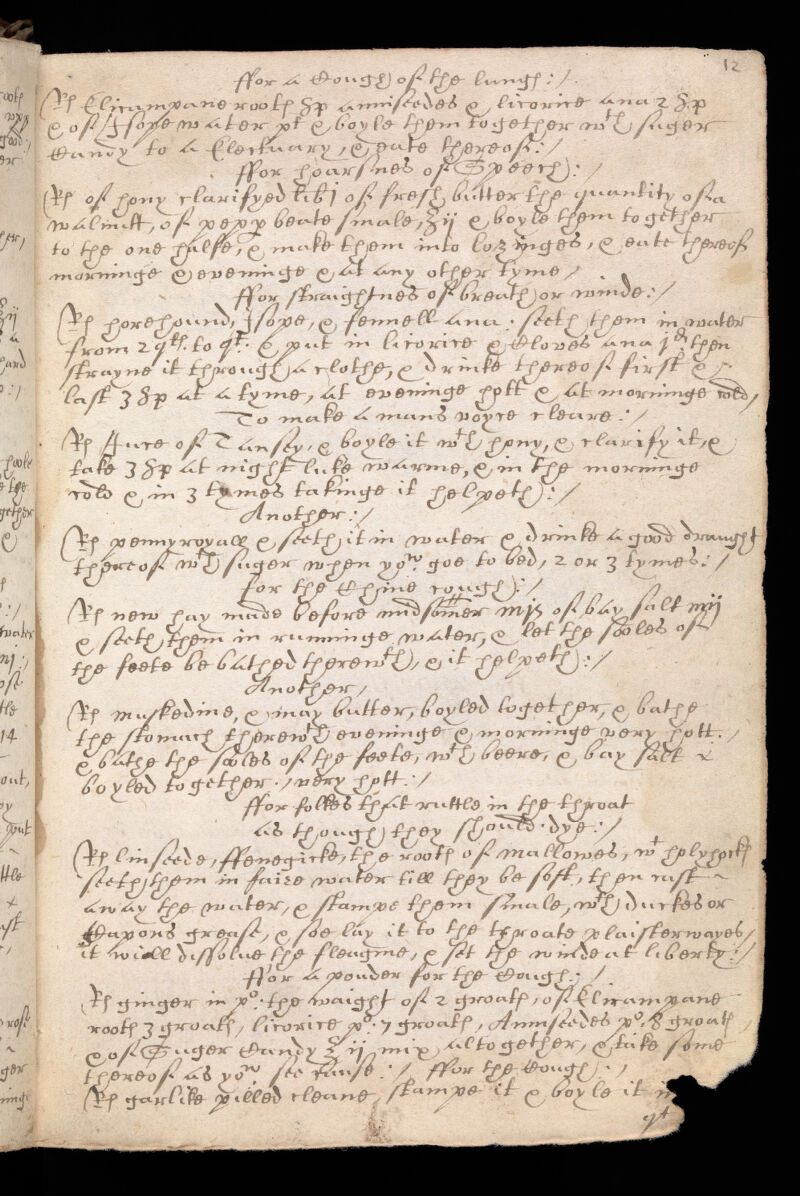 12
ffor a Cough of the lungs:/
Rx Elicampane roots ℥p anniseedes & licorice ana 2 ℥p
& of Isope water pt & boyle them together wth suger
Candy to a Electuary, & eate thereof:/
ffor hoarsnes of Speech:/
Rx of hony clarifyed lib j of fresh butter the quantity of a
walnutt, of pepp beate smale, ℥ij & boyle them together
to the one halfe, & make them into lozinges, & eate thereof
morninge & eveninge & at any other tyme/
ffor straightnes of breath or winde:/
Rx horehound, Isope, & fennell ana: seeth them in water
from 2 qts. to qt: & put in licorice & Cloves ana j d then
strayne it through a clothe, & drinke thereof first &
last 3 ℥p at a tyme, at eveninge hott & at morninge cold/
To make a mans voyce cleare:/
Rx Juce of Tansey, & boyle it wth hony, & clarify it, &
take 3 ℥p at night luke warme, & in the morninge
cold & in 3 tymes takinge it helpeth:/
Another:/
Rx pennyroyall & seeth it in water & drinke a good draught
thereof wth suger when you goe to bed, 2 or 3 tymes:/
for the Chine cough:/
Rx new hay made before midsomer mjß of bay salt mij
& seeth them in runninge water, & let the sooles of
the feete be bathed therewth, & it helpeth:/
Another/
Rx muskedine, & may butter, boyled together, & bathe
the stomach therewth eveninge & morninge very hott./
& bathe the sooles of the feete, wth beere, & bay salt
boyled together:, very hott:/
ffor folkes that ruttle in the throat
as though they should dye:/
Rx linseede, ffenegicke, the roots of mallowes, wt holyhocks
seeth them in faire water till they be soft, then cast
away the water, & stampe them smale, wth duckes or
Capons grease, & soe lay it to the throate plaisterwayes/
it will dissolve the fleagme, & set the winde at liberty:/
ffor a pouder for the Cough:/
Rx ginger in po: the waight of 2 groats, of Elicampane
roots 3 groats, licorice po: 7 groats, Anniseedes po: 8 groats
& of Suger Candy ℥ij mix altogether, & take some
thereof as you see cause:/ ffor the Cough:/
Rx garlike pilled cleane, stampe it & boyle it in
qt